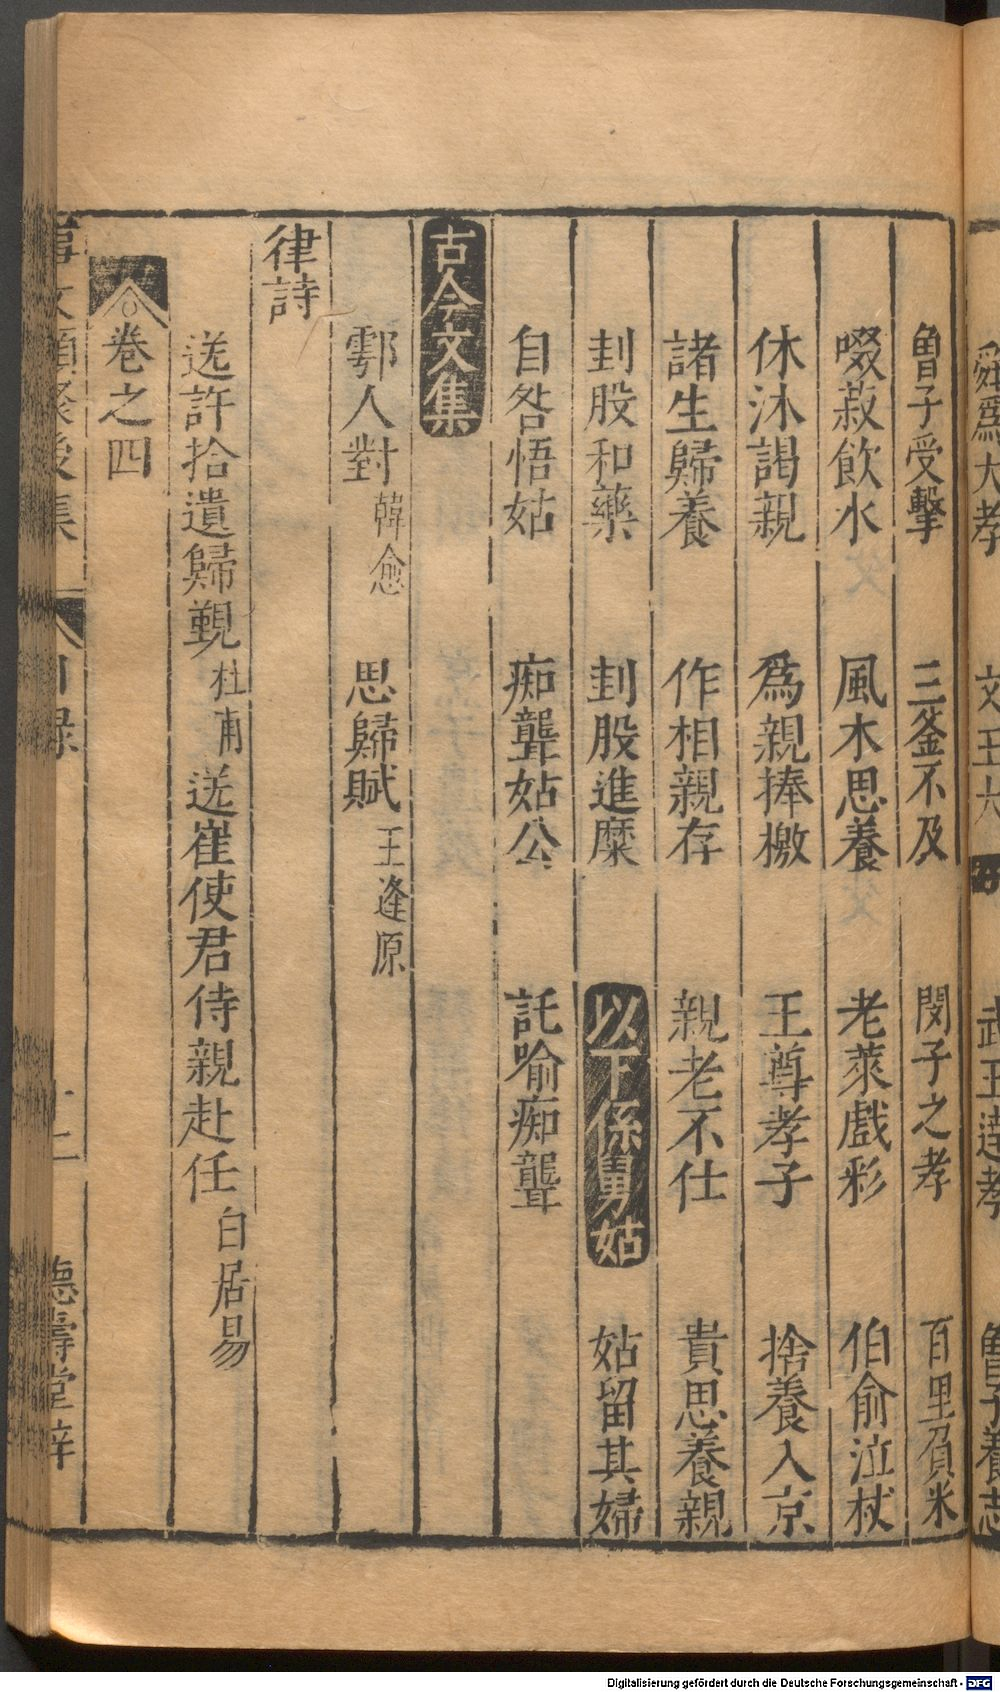 舜爲大孝 文王大孝 武王達孝 曾子養志
曾子受擊 三釜不及 閔子之孝 百里負米
啜菽飲水 風木思養 老萊戲彩 伯俞泣杖
休沐謁親 爲親捧檄 王尊孝子 捨養入京
諸生歸養 作相親存 親老不仕 貴思養親
刲股和藥 刲股進糜 以下係舅姑 姑留其婦
自咎悟姑 痴聾姑公 託喻痴聾
古今文集
鄠人對 韓愈 思歸賦 王逢原
律詩
送許拾遺歸覲 杜甫 送崔使君侍親赴任 白居易
卷之四
事文類聚後集 目錄 德壽堂梓
Digitalisierung gefördert durch die Deutsche Forschungsgemeinschaft - DFG